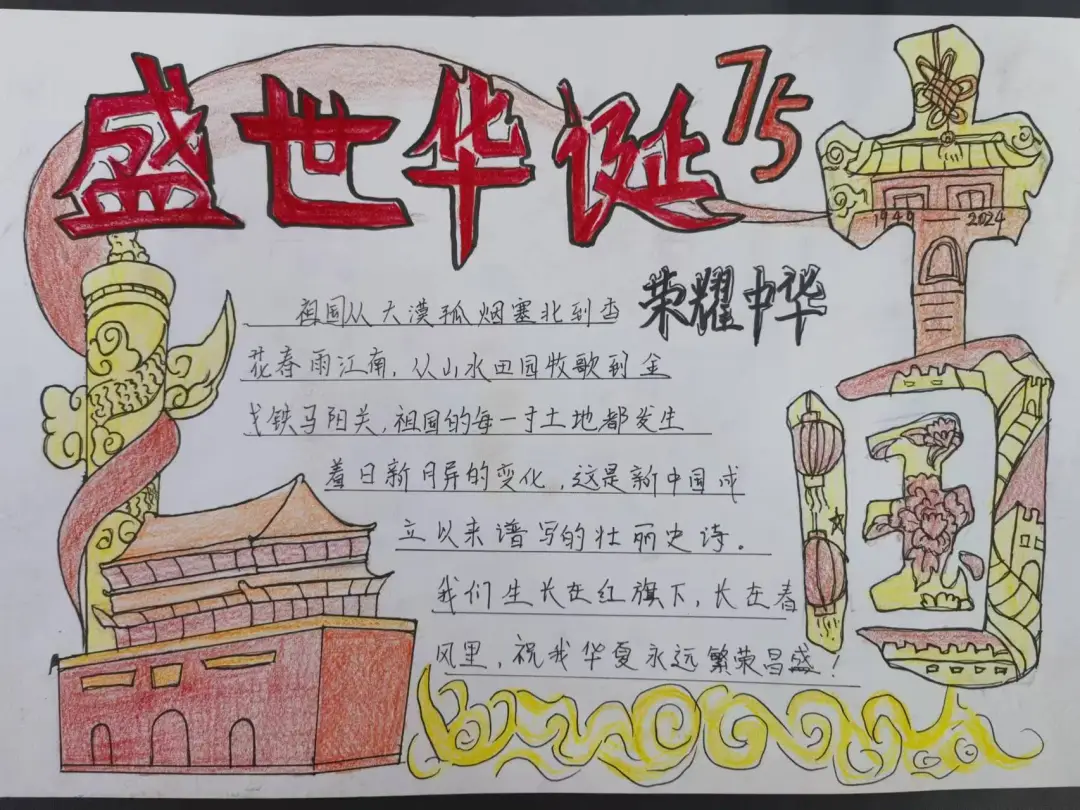 盛世华诞75
1949—2024
荣耀中华
中
国
祖国从大漠孤烟塞北到杏
花春雨江南,从山水田园牧歌到金
戈铁马阳关,祖国的每一寸土地都发生
着日新月异的变化,这是新中国成
立以来谱写的壮丽史诗。
我们生长在红旗下,长在春
风里,祝我华夏永远繁荣昌盛!